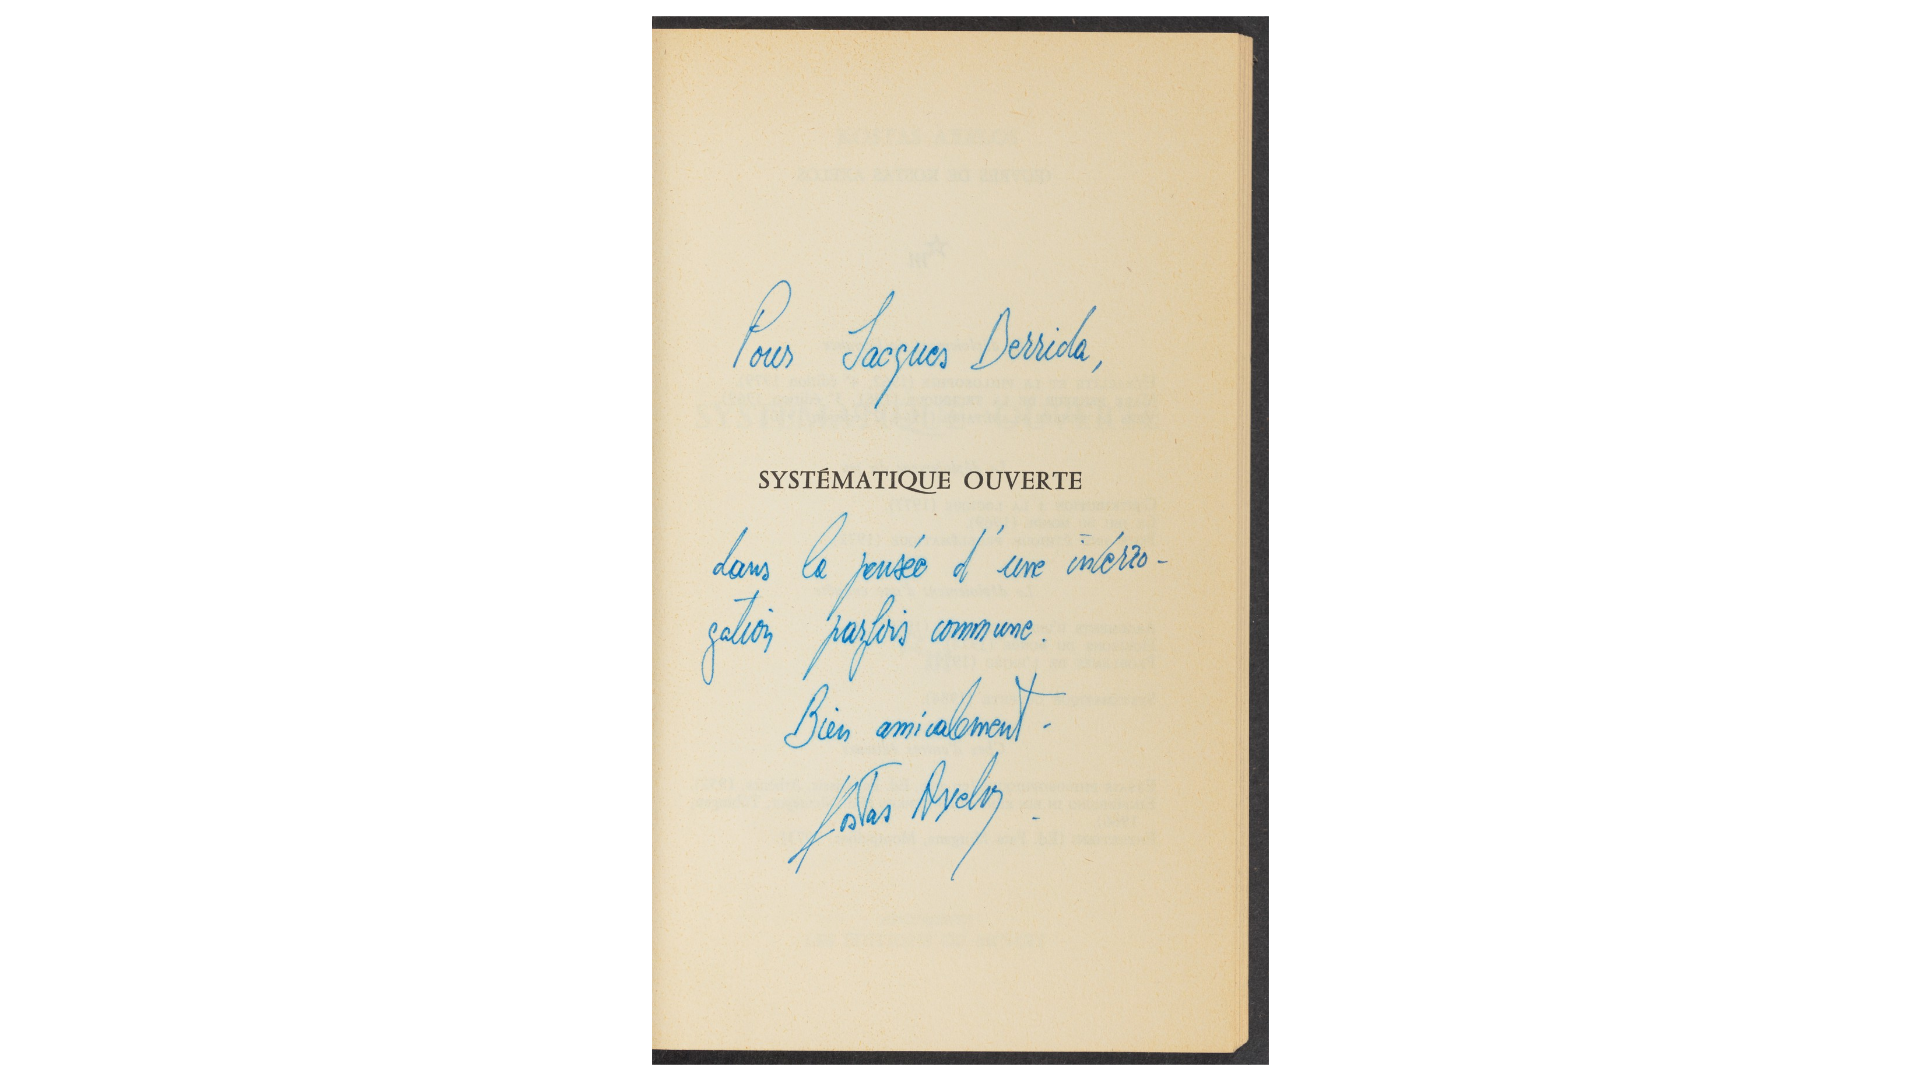 Pour Jacques Derrida,
SYSTÉMATIQUE OUVERTE
dans la pensée d'une interro-
gation parfois commune.
Bien amicalement -
Kostas Axelos